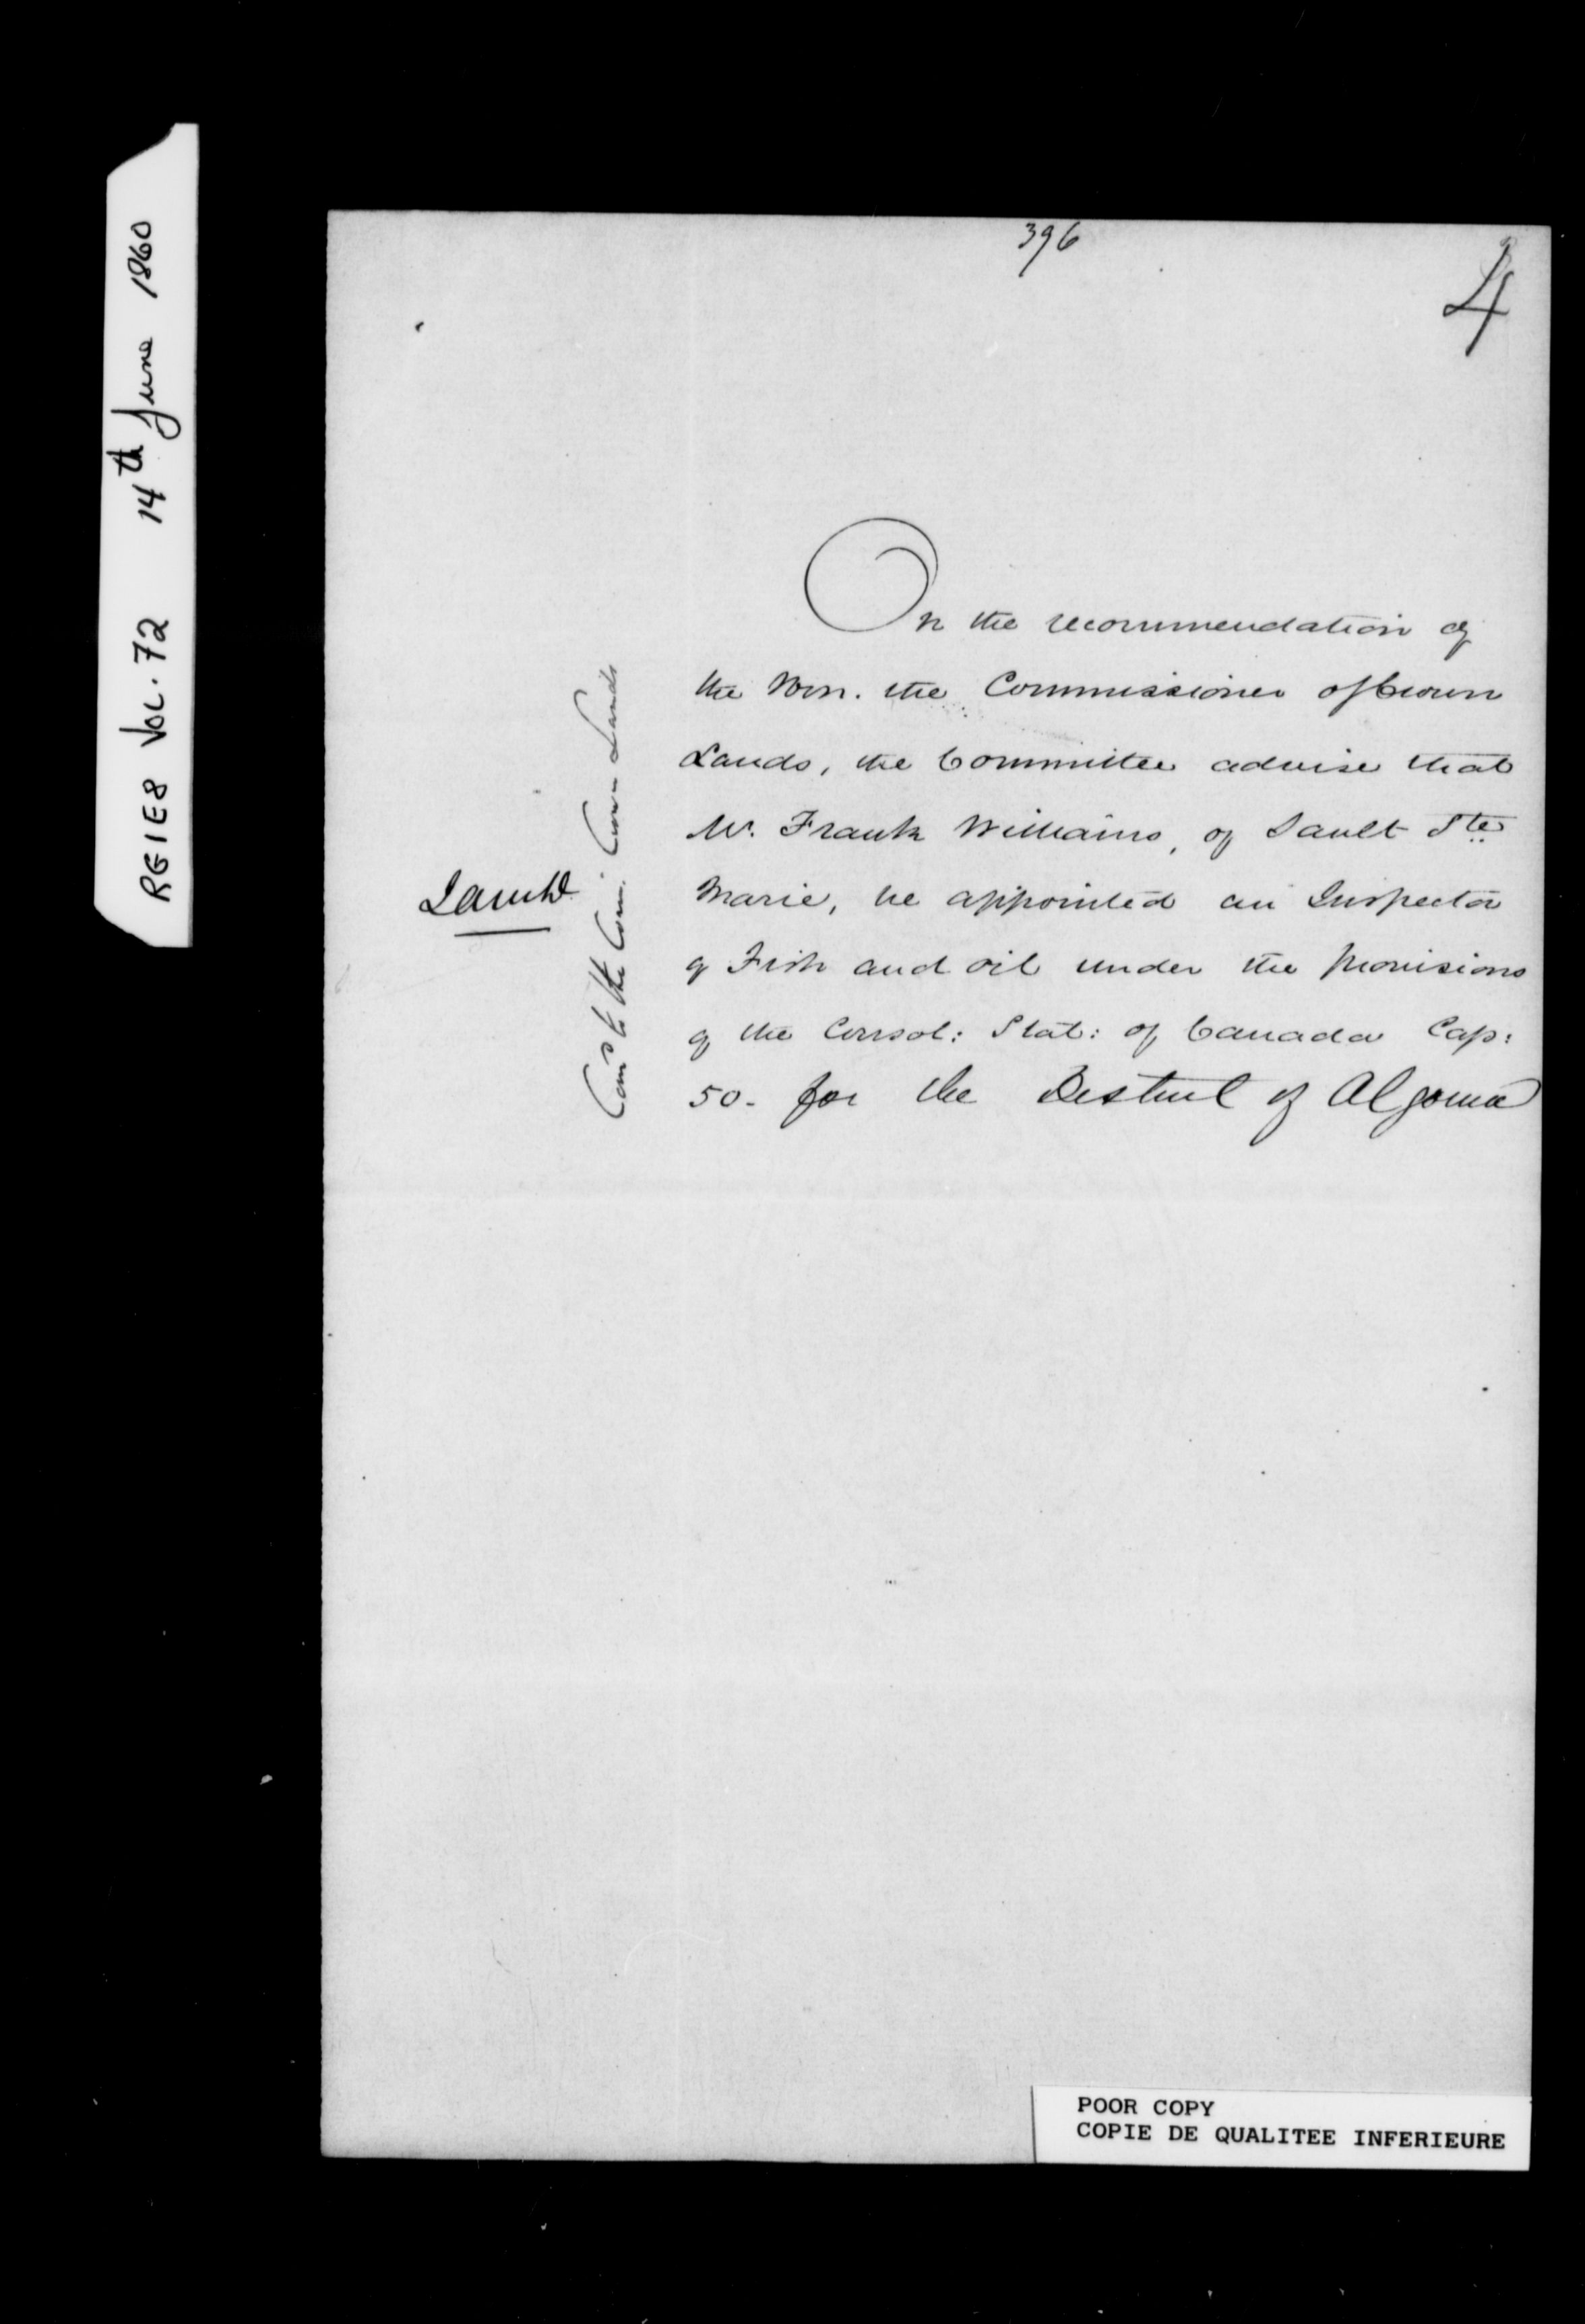 RG1E8 VOL. 72 14th June 1860
396
4
On the recommendation of
the Hon. the Commissioner of Crown
Lands, the Committee advise that
Mr. Frank Williams, of Sault Ste
Marie, be appointed an Inspector
of Fish and oil under the provisions
of the Consol: Stat: of Canada Cap:
50. for the District of Algoma
to the Com: Crown Lands
POOR COPY
COPIE DE QUALITEE INFERIEURE